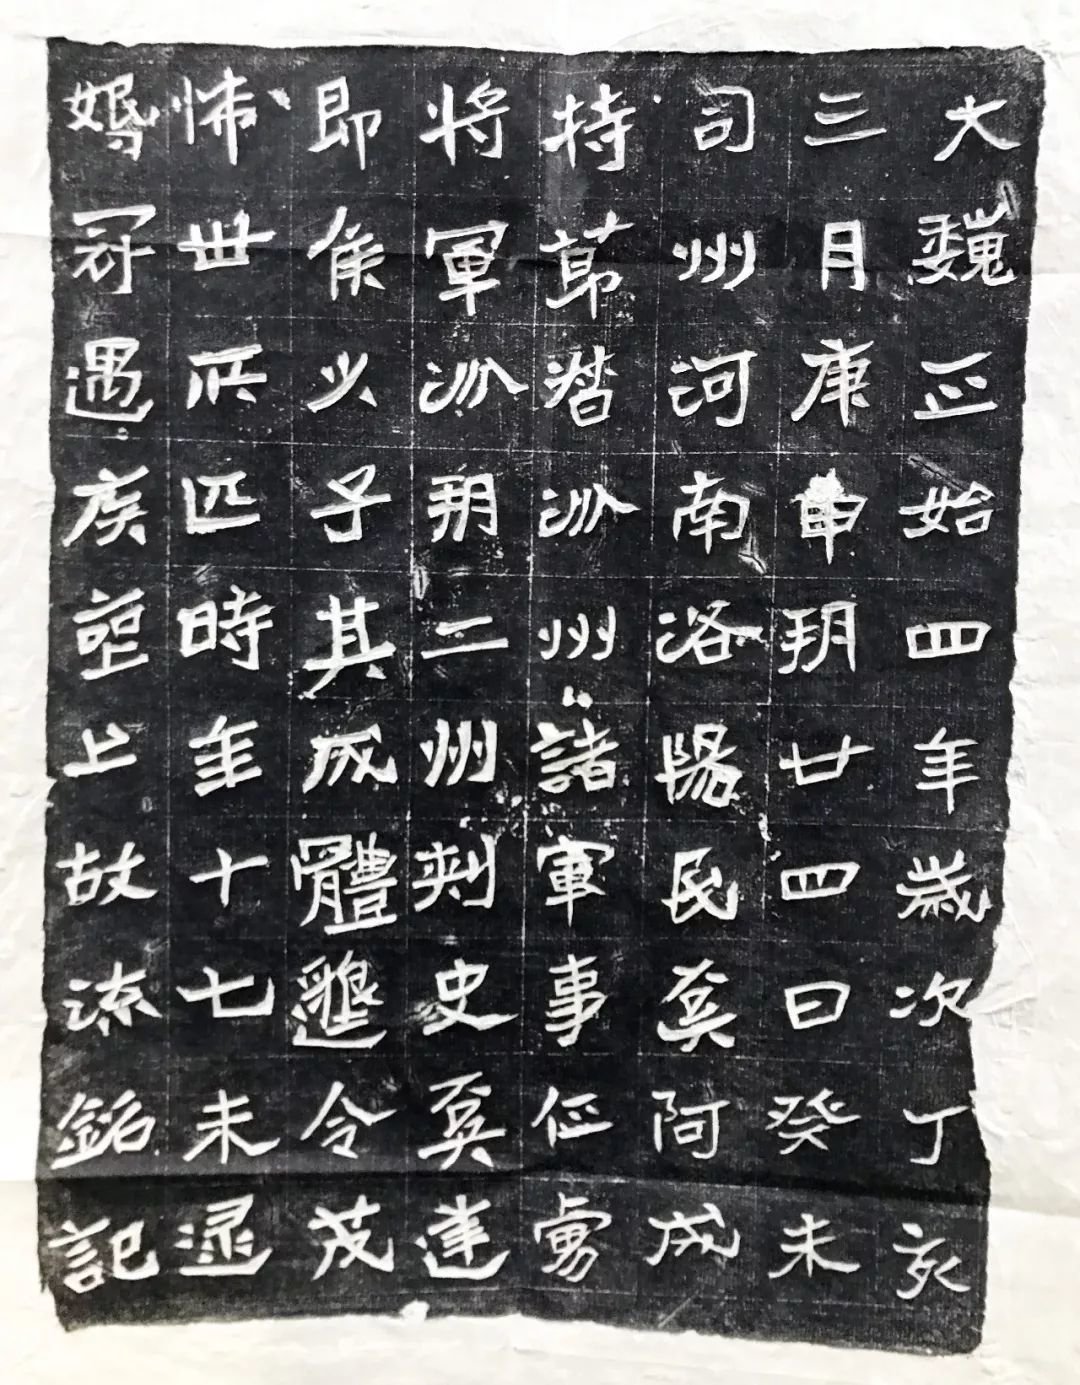 大魏正始四年歲次丁亥
三月庚申朔廿四日癸未
司州河南洛陽民奚阿成
持節督汾州諸軍事征虜
將軍汾朔二州刺史奚達
即侯乂子其成體邈令茂
悕世所匹時年十七未逮
婚冠遇疾薨亡故流銘記